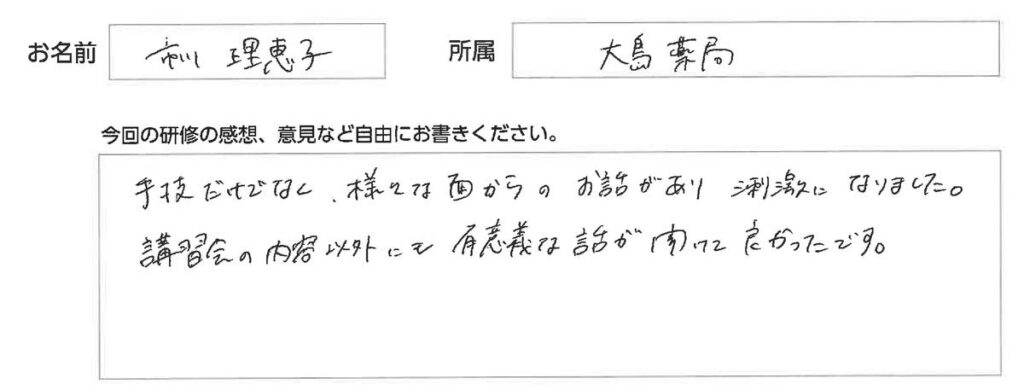 お名前 市川 理恵子 所属 大島薬局
今回の研修の感想、意見など自由にお書きください。
手技だけでなく、様々な面からのお話があり刺激になりました。
講習会の内容以外にも有意義な話が聞けて良かったです。